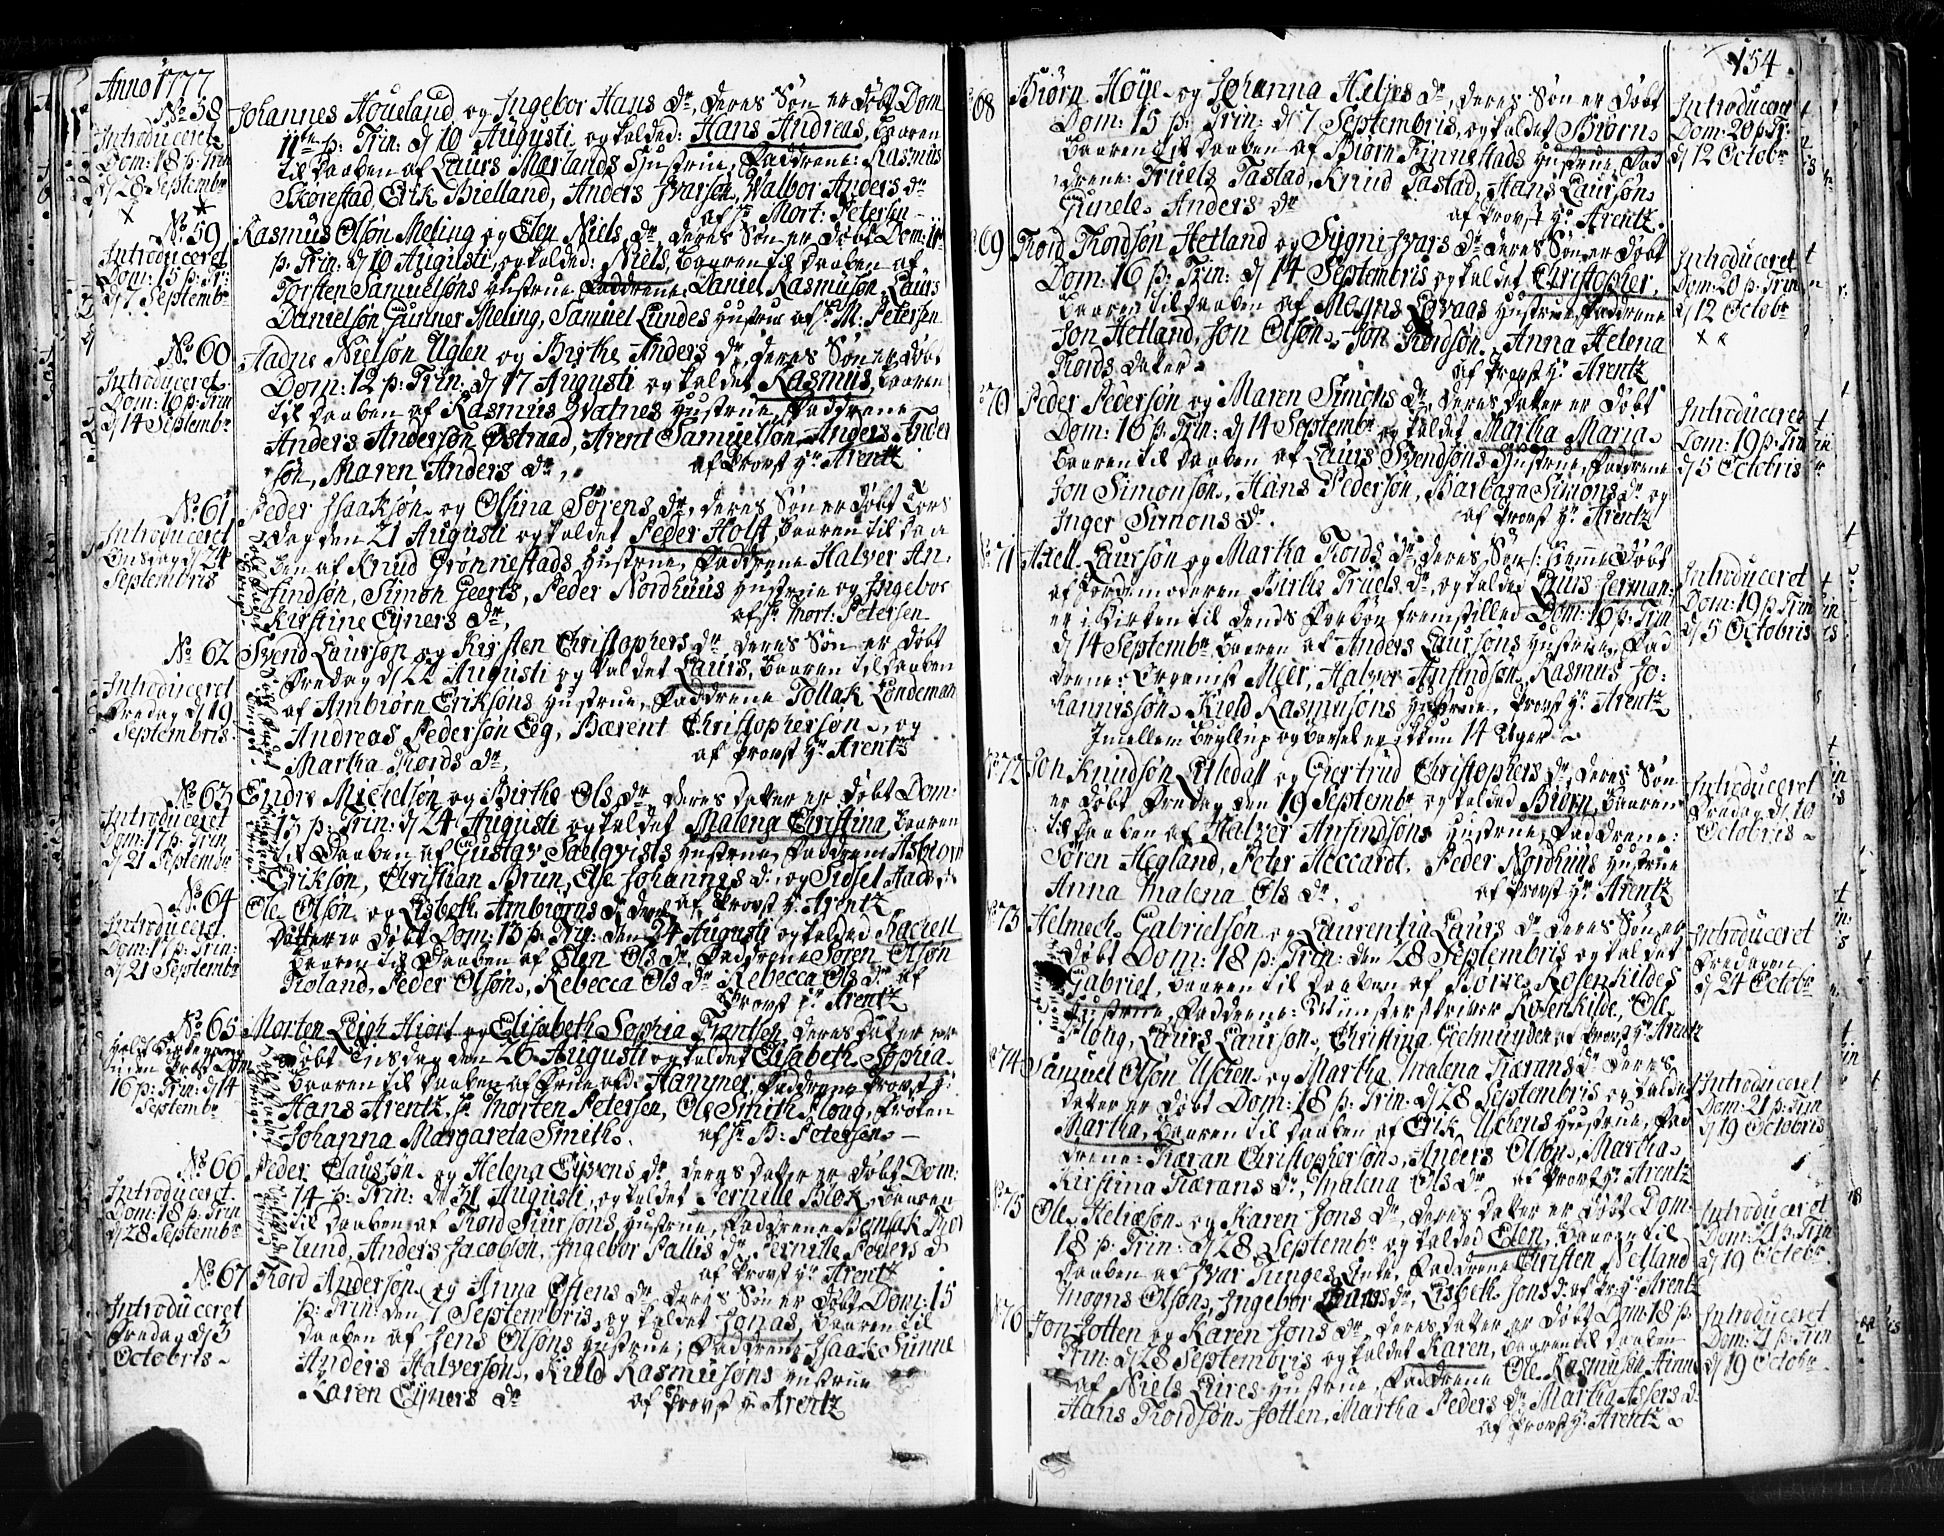 Anno 1777
No 58
Introduceret
Dom: 18 p: Trin
d 28 Septembr
Johannes Houeland og Ingebor Hans dr, deres Søn er døbt Dom
11te p: Trin: d 10 Augusti, og kalded: Hans Andreas, baaren
til daaben af Laurs Marlands Hustrue, Faddrene: Rasmus
Skorestad, Erik Bielland, Anders Ivarsøn, Walbor Anders dr
af Hr Mort: Petersen
No 59
Introduceret
Dom: 15 p: Tr:
d 7 Septembr
Rasmus Olsøn Meling og Elen Niels dr, deres Søn er døbt Dom: 11te
p: Trin: d 10 Augusti, og kalded: Niels, baaren til daaben af
Torsten Samuelsøns Hustrue Faddrene Daniel Rasmusøn, Laurs
Danielsøn Gunner Meling, Samuel Lundes Hustrue af Hr M: Petersen
No 60
Introduceret
Dom: 16 p: Trin
d 14 Septembr
Aadne Nielsøn Uglen og Birthe Anders dr, deres Søn er døbt
Dom: 12 p: Trin: d 17 Augusti og kaldet Rasmus, baaren
til daaben af Rasmus Qvatnes Hustrue, Faddrene
Anders Andersøn Østraad, Arent Samuelsøn Anders Ander
søn, Maren Anders dr, af Provst Hr Arentz
No 61
Introduceret
Onsdag d 24
Septembris
Peder Isaaksøn og Olsina Sørens dr, deres Søn er døbt Tors
dag den 21 Augusti og kaldet Peder Holst, baaren til daa
ben af Knud Grønnestads Hustrue, Faddrene Halver An,
findsøn, Simon Geerts, Peder Nordhuus Hustrue og Ingebor
Kirstine Ejners dr, af Hr Mort: Petersen
No 62
Introduceret
Fredag d 19
Septembris
Svend Laursøn og Kirsten Christophers dr, deres Søn er døbt
Fredag d 22 Augusti og kaldet Laurs, baaren til daaben
af Ambiørn Eriksøns Hustrue, Faddrene Tollak Londeman
Andreas Pedersøn Eeg, Bærent Christophersøn, og
Martha Thords dr, af Provst Hr Arentz
No 63
Introduceret
Dom: 17 p: Trin:
d 21 Septembr
Endre Michelsøn og Birthe Ols dr, deres dater er døbt Dom:
13 p: Trin: d 24 Augusti og kaldet Malena Christina baaren
til daaben af Gustav Saelqvists Hustrue, Faddrene Asbiorn
Erikson, Christian Brun, Else Johannes d: og Sidsel Aads dr
af Provst Hr Arentz
No 64
Introduceret
Dom: 17 p: Trin:
d 21 Septembr
Ole Olsøn og Lisbeth Ambiørns dr deres
datter er døbt Dom: 13 p: Trin: den 24 Augusti og kalded Rachell
baaren til daaben af Elen Ols dr, Faddrene Soren Olsøn
Roland, Peder Olsøn, Rebecca Ols dr Rebecca Ols dr af
Provst Hr Arentz
No 65
16 p: Trin: d 14
Septembr
Morten Leigh Hiort og Elisabeth Sophia Krantzen, deres dater er
døbt Tiisdag den 26 Augusti og kaldet Elisabeth Sophia
baaren til daaben af Frue Hammer, Faddrene Provst Hr
Hans Arentz, Hr Morten Petersen, Ole Smith Ploug, Frøken
Johanna Margareta Smith. af Hr B: Petersen
No 66
Introduceret
Dom: 18 p: Trin
d 28 Septembr
Peder Clausøn og Helena Ejvens dr deres dater er døbt Dom:
14 p: Trin: d 31 Augusti, og kaldet Pernille Blok, baaren
til daaben af Tord Siursøns Hustrue, Faddrene Bensak Thor
lund, Anders Jacobsøn, Ingebor Pallis dr, Pernille Peders d
af Provst Hr Arentz
No 67
Introduceret
Fredag d 3
Octobris
Thord Andersøn og Anna Eftens dr, deres Søn er døbt Dom: 15
p: Trin: den 7 Septembris, og kaldet Jonas, baaren til
daaben af Jens Olsøns Hustrue, Faddrene Isaak Sunne
Anders Halversøn, Kield Rasmusøns Hustrue
Karen Ejners dr af Provst Hr Arentz
154
68
Biørn Høye og Johanna Heljes dr, deres Søn er døbt
Dom: 15 p: Trin: d 7 Septembris, og kaldet Biørn
baaren til daaben af Biørn Finnestads Hustrue, Fad
drene: Truels Tastad, Knud Tastad, Hans Laursøn,
Gunele Anders dr af Provst Hr Arentz
Introduceret
Dom: 20 p: Tr:
d 12 Octobr
69
Thord Thordsøn Hetland og Sygni Ivars dr deres Søn er døbt
Dom: 16 p: Trin: d 14 Septembris og kaldet Christopher,
baaren til daaben af Mogns Hustrue, Faddrene
Jon Hetland, Jon Olsøn, Jon Thordsøn, Anna Helena
Thords dater af Provst Hr Arentz
Introduceret
Dom: 20 p: Trin
d 12 Octobr
70
Peder Pedersøn og Maren Simons dr, deres dater er døbt
Dom: 16 p: Trin: d 14 Septembr og kaldet Martha Maria
baaren til daaben af Laurs Svendsøns Hustrue, Faddrene
Jon Simonsøn, Hans Pedersøn, Barbara Simons dr og
Inger Simons dr. af Provst Hr Arentz
Introduceret
Dom: 19 p: Trin
d 5 Octobris
71
Axell Laursøn og Martha Thords dr, deres Søn /: hiemme døbt
af Jordemoderen Birthe Truels dr, og kalded Laurs Herman:
er i Kirken til Dends Forbøn fremstilled Dom: 16 p: Trin
d 14 Septembr baaren af Anders Laursøns Hustrue, Fad
drene: Organist Meir, Halvor Ansindsøn, Rasmus Jo:
hannissøn, Kield Rasmusøns Hustrue, Provst Hr Arentz
Imellem Bryllup og barsel er ikkun 14 Uger
Introduceret
Dom: 19 p: Trin
d 5 Octobris
72
Jon Knudsøn Lilledall og Giertrud Christophers dr, deres Søn
er døbt Fredag den 19 Septembr og kalded Biørn, baaren
til daaben af Halver Ansindsøns Hustrue, Faddrene:
Søren Hegland, Peter Heccardt, Peder Nordhuus Hustrue
Anna Malena Ols dr. af Provst Hr Arentz
Introduceret
Fredag d 10
Octobris
73
Helmech Gabrielsøn og Laurentia Laurs dr deres Søn er
døbt Dom: 18 p: Trin: den 28 Septembris og kaldet
Gabriel, baaren til daaben af Børre Rosenkildes
Hustrue, Faddrene: Rosenkilde, Ole
Ploug, Laurs Laursøn, Christina Geelmuyden af Provst Hr Arentz
Introduceret
Fredagen
d 24 Octobr
74
Samuel Olsøn Uschen og Martha Malena Tiærans dr deres
dater er døbt Dom: 18 p: Trin: d 28 Septembris og kaldet
Martha, baaren til daaben af Erik Uschens Hustrue, Fad
drene: Tiæran Christophersøn, Anders Olsøn, Martha
Kirstina Tiærans dr, Malena Ols dr af Provst Hr Arentz
Introduceret
Dom: 21 p: Trin
d 19 Octobris
75
Ole Helgesøn og Karen Jons dr, deres dater er døbt Dom:
18 p: Trin: d 28 Septembr og kalded Elen, baaren til
daaben af Ivar Tunges Enke, Faddrene Christen Nelland
Mogns Olsøn, Ingebor Hans dr, Lisbeth Jons d: af Pr: Hr Arentz
Introduceret
Dom: 21 p: Trin
d 19 Octobr
76
Jon Jotten og Karen Jons dr deres dater er døbt Dom: 18 p:
Trin: d 28 Septembris og kaldet Karen, baaren til daaben
af Niels Eires Hustrue, Faddrene Ole Rasmusøn Hinne
Hans Thordsøn Jotten, Martha Peders dr Martha Assers d:
af Provst Hr Arentz
Introduceret
Dom: 21 p: Trin
d 19 Octobr